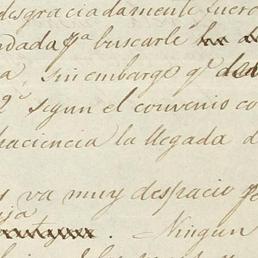 desgraciadamente fuero
ndada pa buscarle
a, sin embargo q.
2º segun el convenio co
paciencia la llegada d
y va muy despacio
. Ningun